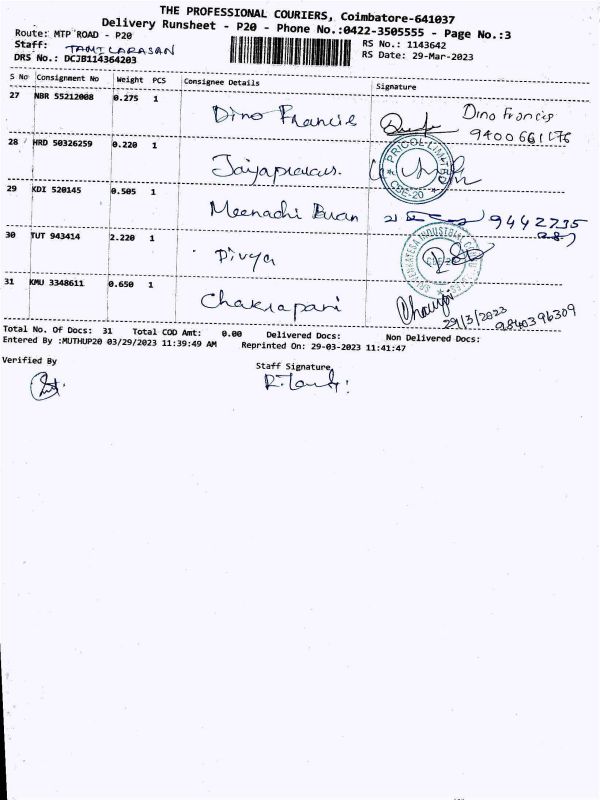 THE PROFESSIONAL COURIERS, Coimbatore-641037
Delivery Runsheet - P20 - Phone No.:0422-3505555 - Page No.:3
Route: MTP ROAD - P20
Staff: TAMILARASAN
DRS No.: DCJB114364203
RS No.: 1143642
RS Date: 29-Mar-2023
S No Consignment No Weight PCS Consignee Details Signature
27 NBR 55212008 0.275 1 Dino Francis Dino Francis
9400661176
28 HRD 50326259 0.220 1 Jaiyaprakas.
PRICOL LIMITED
CBE-20
29 KDI 520145 0.505 1 Meenachi 9442735
30 TUT 943414 2.220 1 Divya
31 KMU 3348611 0.650 1 Chakrapani
29/3/2023
9840396309
Total No. Of Docs: 31 Total COD Amt: 0.00 Delivered Docs: Non Delivered Docs:
Entered By :MUTHUP20 03/29/2023 11:39:49 AM Reprinted On: 29-03-2023 11:41:47
Verified By
Staff Signature